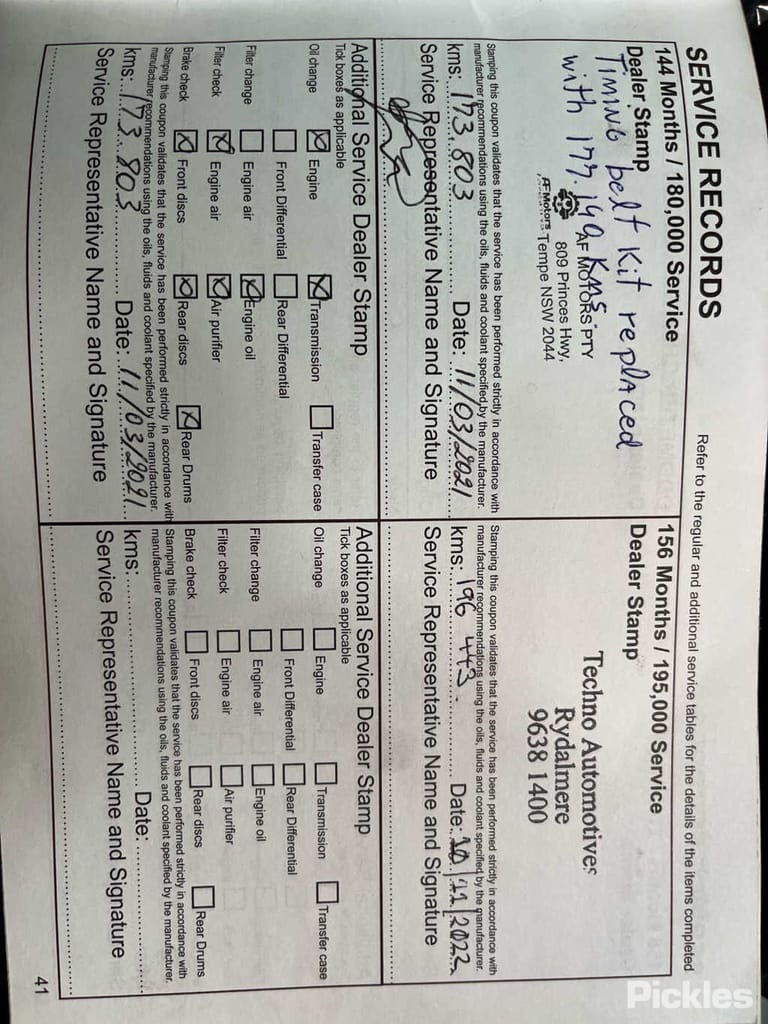 SERVICE RECORDS
Refer to the regular and additional service tables for the details of the items completed
144 Months / 180,000 Service
Dealer Stamp
Timing belt Kit replaced
with 177.199 KMS.
AF MOTORS PTY
809 Princes Hwy,
Tempe NSW 2044
AF Motors
Stamping this coupon validates that the service has been performed strictly in accordance with
manufacturer recommendations using the oils, fluids and coolant specified by the manufacturer.
kms: 173 803 Date: 11/03/2021
Service Representative Name and Signature
156 Months / 195,000 Service
Dealer Stamp
Techno Automotives
Rydalmere
9638 1400
Stamping this coupon validates that the service has been performed strictly in accordance with
manufacturer recommendations using the oils, fluids and coolant specified by the manufacturer.
kms: 196 443. Date: 10/11/2022
Service Representative Name and Signature
Additional Service Dealer Stamp
Tick boxes as applicable
Oil change Engine Transmission Transfer case
Front Differential Rear Differential
Filter change Engine air Engine oil
Filter check Engine air Air purifier
Brake check Front discs Rear discs Rear Drums
Stamping this coupon validates that the service has been performed strictly in accordance with
manufacturer recommendations using the oils, fluids and coolant specified by the manufacturer.
kms: 173 803 Date: 11/03/2021
Service Representative Name and Signature
Additional Service Dealer Stamp
Tick boxes as applicable
Oil change Engine Transmission Transfer case
Front Differential Rear Differential
Filter change Engine air Engine oil
Filter check Engine air Air purifier
Brake check Front discs Rear discs Rear Drums
Stamping this coupon validates that the service has been performed strictly in accordance with
manufacturer recommendations using the oils, fluids and coolant specified by the manufacturer.
kms: Date:
Service Representative Name and Signature
41
Pickles